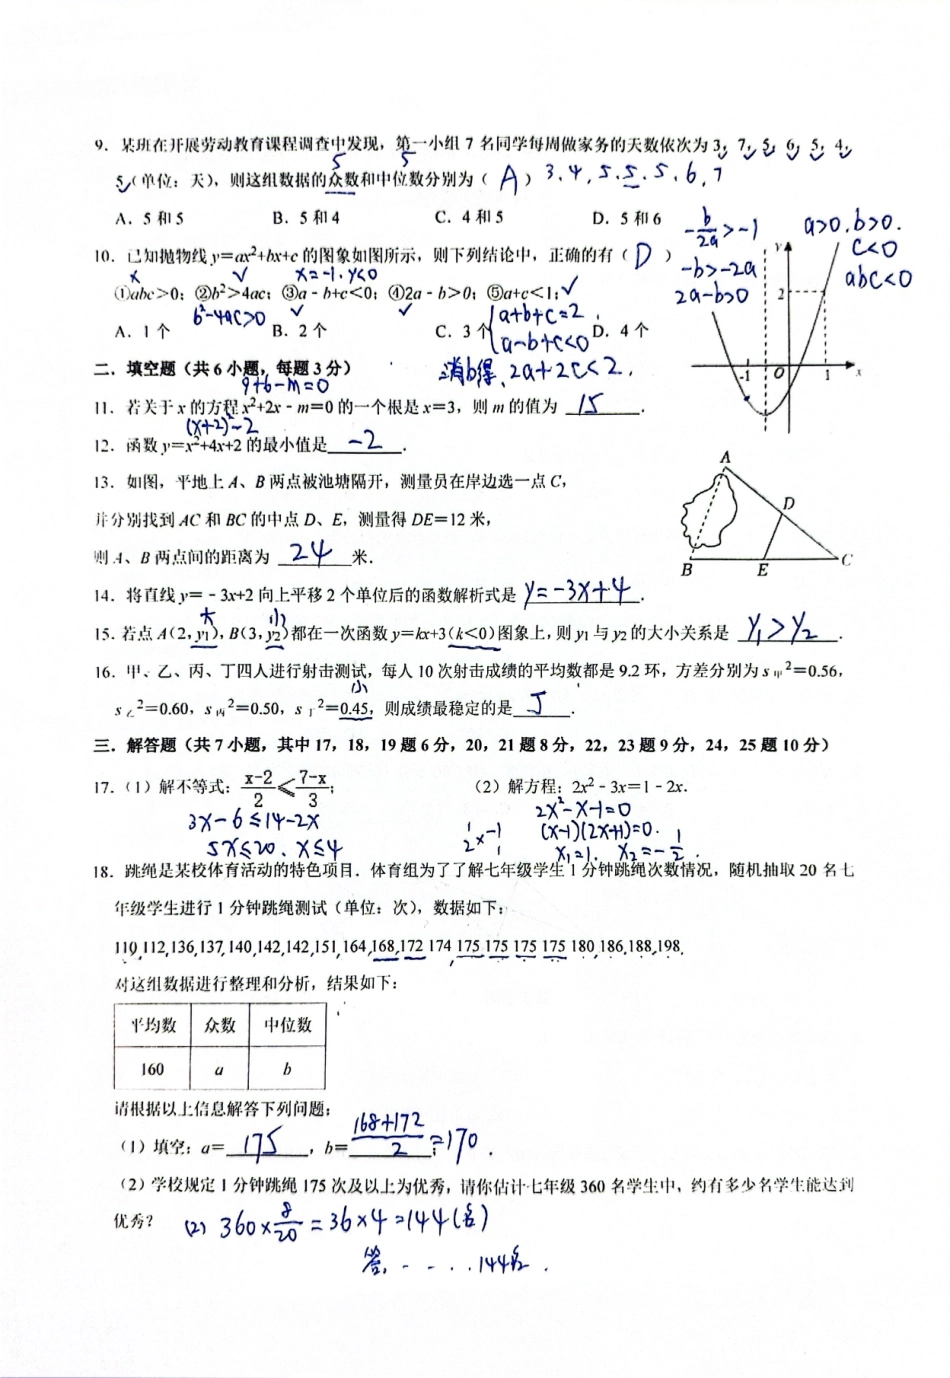 9. 某班在开展劳动教育课程调查中发现，第一小组 7 名同学每周做家务的天数依次为 3，7，5，6，5，4，
5 5
5（单位：天），则这组数据的众数和中位数分别为（ A ） 3,4,5.5.5.6,7
A．5 和 5 B．5 和 4 C．4 和 5 D．5 和 6
-b/2a>-1 a>0.b>0.
10. 已知抛物线 y=ax²+bx+c 的图象如图所示，则下列结论中，正确的有（ D ） -b>-2a c<0
× √ x=-1.y<0 2a-b>0 abc<0
①abc>0；②b²>4ac；③a-b+c<0；④2a-b>0；⑤a+c<1；√
b²-4ac>0 √ √ a+b+c=2
A．1 个 B．2 个 C．3 个 D．4 个
a-b+c<0
二．填空题（共 6 小题，每题 3 分） 消b得，2a+2c<2.
y 2 -1 O 1 x
9+6-m=0
11. 若关于 x 的方程 x²+2x-m=0 的一个根是 x=3，则 m 的值为 15 ．
(x+2)²-2
12. 函数 y=x²+4x+2 的最小值是 -2 ．
13. 如图，平地上 A、B 两点被池塘隔开，测量员在岸边选一点 C，
并分别找到 AC 和 BC 的中点 D、E，测量得 DE=12 米，
则 A、B 两点间的距离为 24 米．
A D B E C
14. 将直线 y=-3x+2 向上平移 2 个单位后的函数解析式是 y=-3x+4 ．
大 小
15. 若点 A(2,y₁)，B(3,y₂)都在一次函数 y=kx+3(k<0)图象上，则 y₁ 与 y₂ 的大小关系是 y₁>y₂ ．
16. 甲、乙、丙、丁四人进行射击测试，每人 10 次射击成绩的平均数都是 9.2 环，方差分别为 s甲²=0.56，
小
s乙²=0.60，s丙²=0.50，s丁²=0.45，则成绩最稳定的是 丁 ．
三．解答题（共 7 小题，其中 17，18，19 题 6 分，20，21 题 8 分，22，23 题 9 分，24，25 题 10 分）
17.（1）解不等式：(x-2)/2≤(7-x)/3； （2）解方程：2x²-3x=1-2x．
3x-6≤14-2x 2x²-x-1=0
1 -1 2 1 (x-1)(2x+1)=0.
5x≤20、x≤4 x₁=1. x₂=-1/2.
18. 跳绳是某校体育活动的特色项目．体育组为了了解七年级学生 1 分钟跳绳次数情况，随机抽取 20 名七
年级学生进行 1 分钟跳绳测试（单位：次），数据如下：
110,112,136,137,140,142,142,151,164,168,172 174 175 175 175 175 180,186,188,198．
对这组数据进行整理和分析，结果如下：
平均数 众数 中位数
160 a b
请根据以上信息解答下列问题：
（1）填空：a= 175 ，b= (168+172)/2=170 ．
（2）学校规定 1 分钟跳绳 175 次及以上为优秀，请你估计七年级 360 名学生中，约有多少名学生能达到
优秀？ (2) 360×8/20=36×4=144(名)
答，- - ..144名．